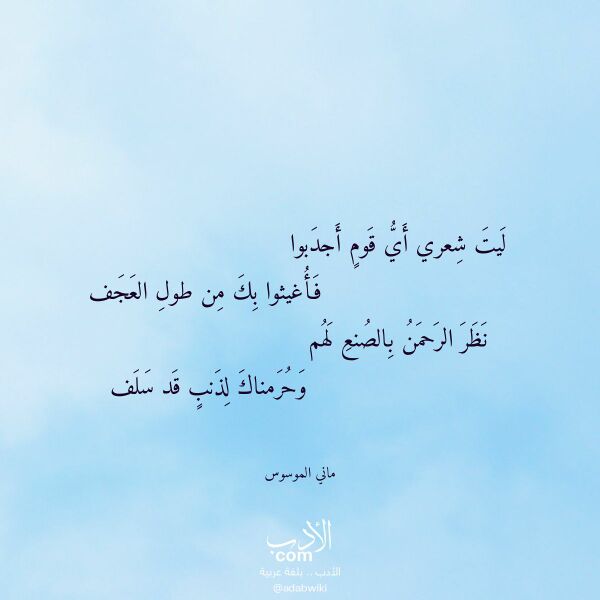 لَيتَ شِعري أَيُّ قَومٍ أَجدَبوا
فَأُغيثوا بِكَ مِن طولِ العَجَف
نَظَرَ الرَحمَنُ بِالصُنعِ لَهُم
وَحُرَمناكَ لِذَنبٍ قَد سَلَف
ماني الموسوس
الأدب
com
الأدب .. بلغة عربية
@adabwiki